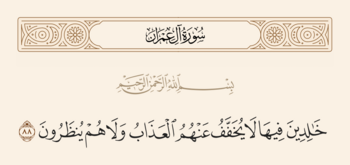 سُورَةُ آلِ عِمْرَان
بِسْمِ اللَّهِ الرَّحْمَٰنِ الرَّحِيمِ
خَٰلِدِينَ فِيهَا لَا يُخَفَّفُ عَنْهُمُ ٱلْعَذَابُ وَلَا هُمْ يُنظَرُونَ ٨٨